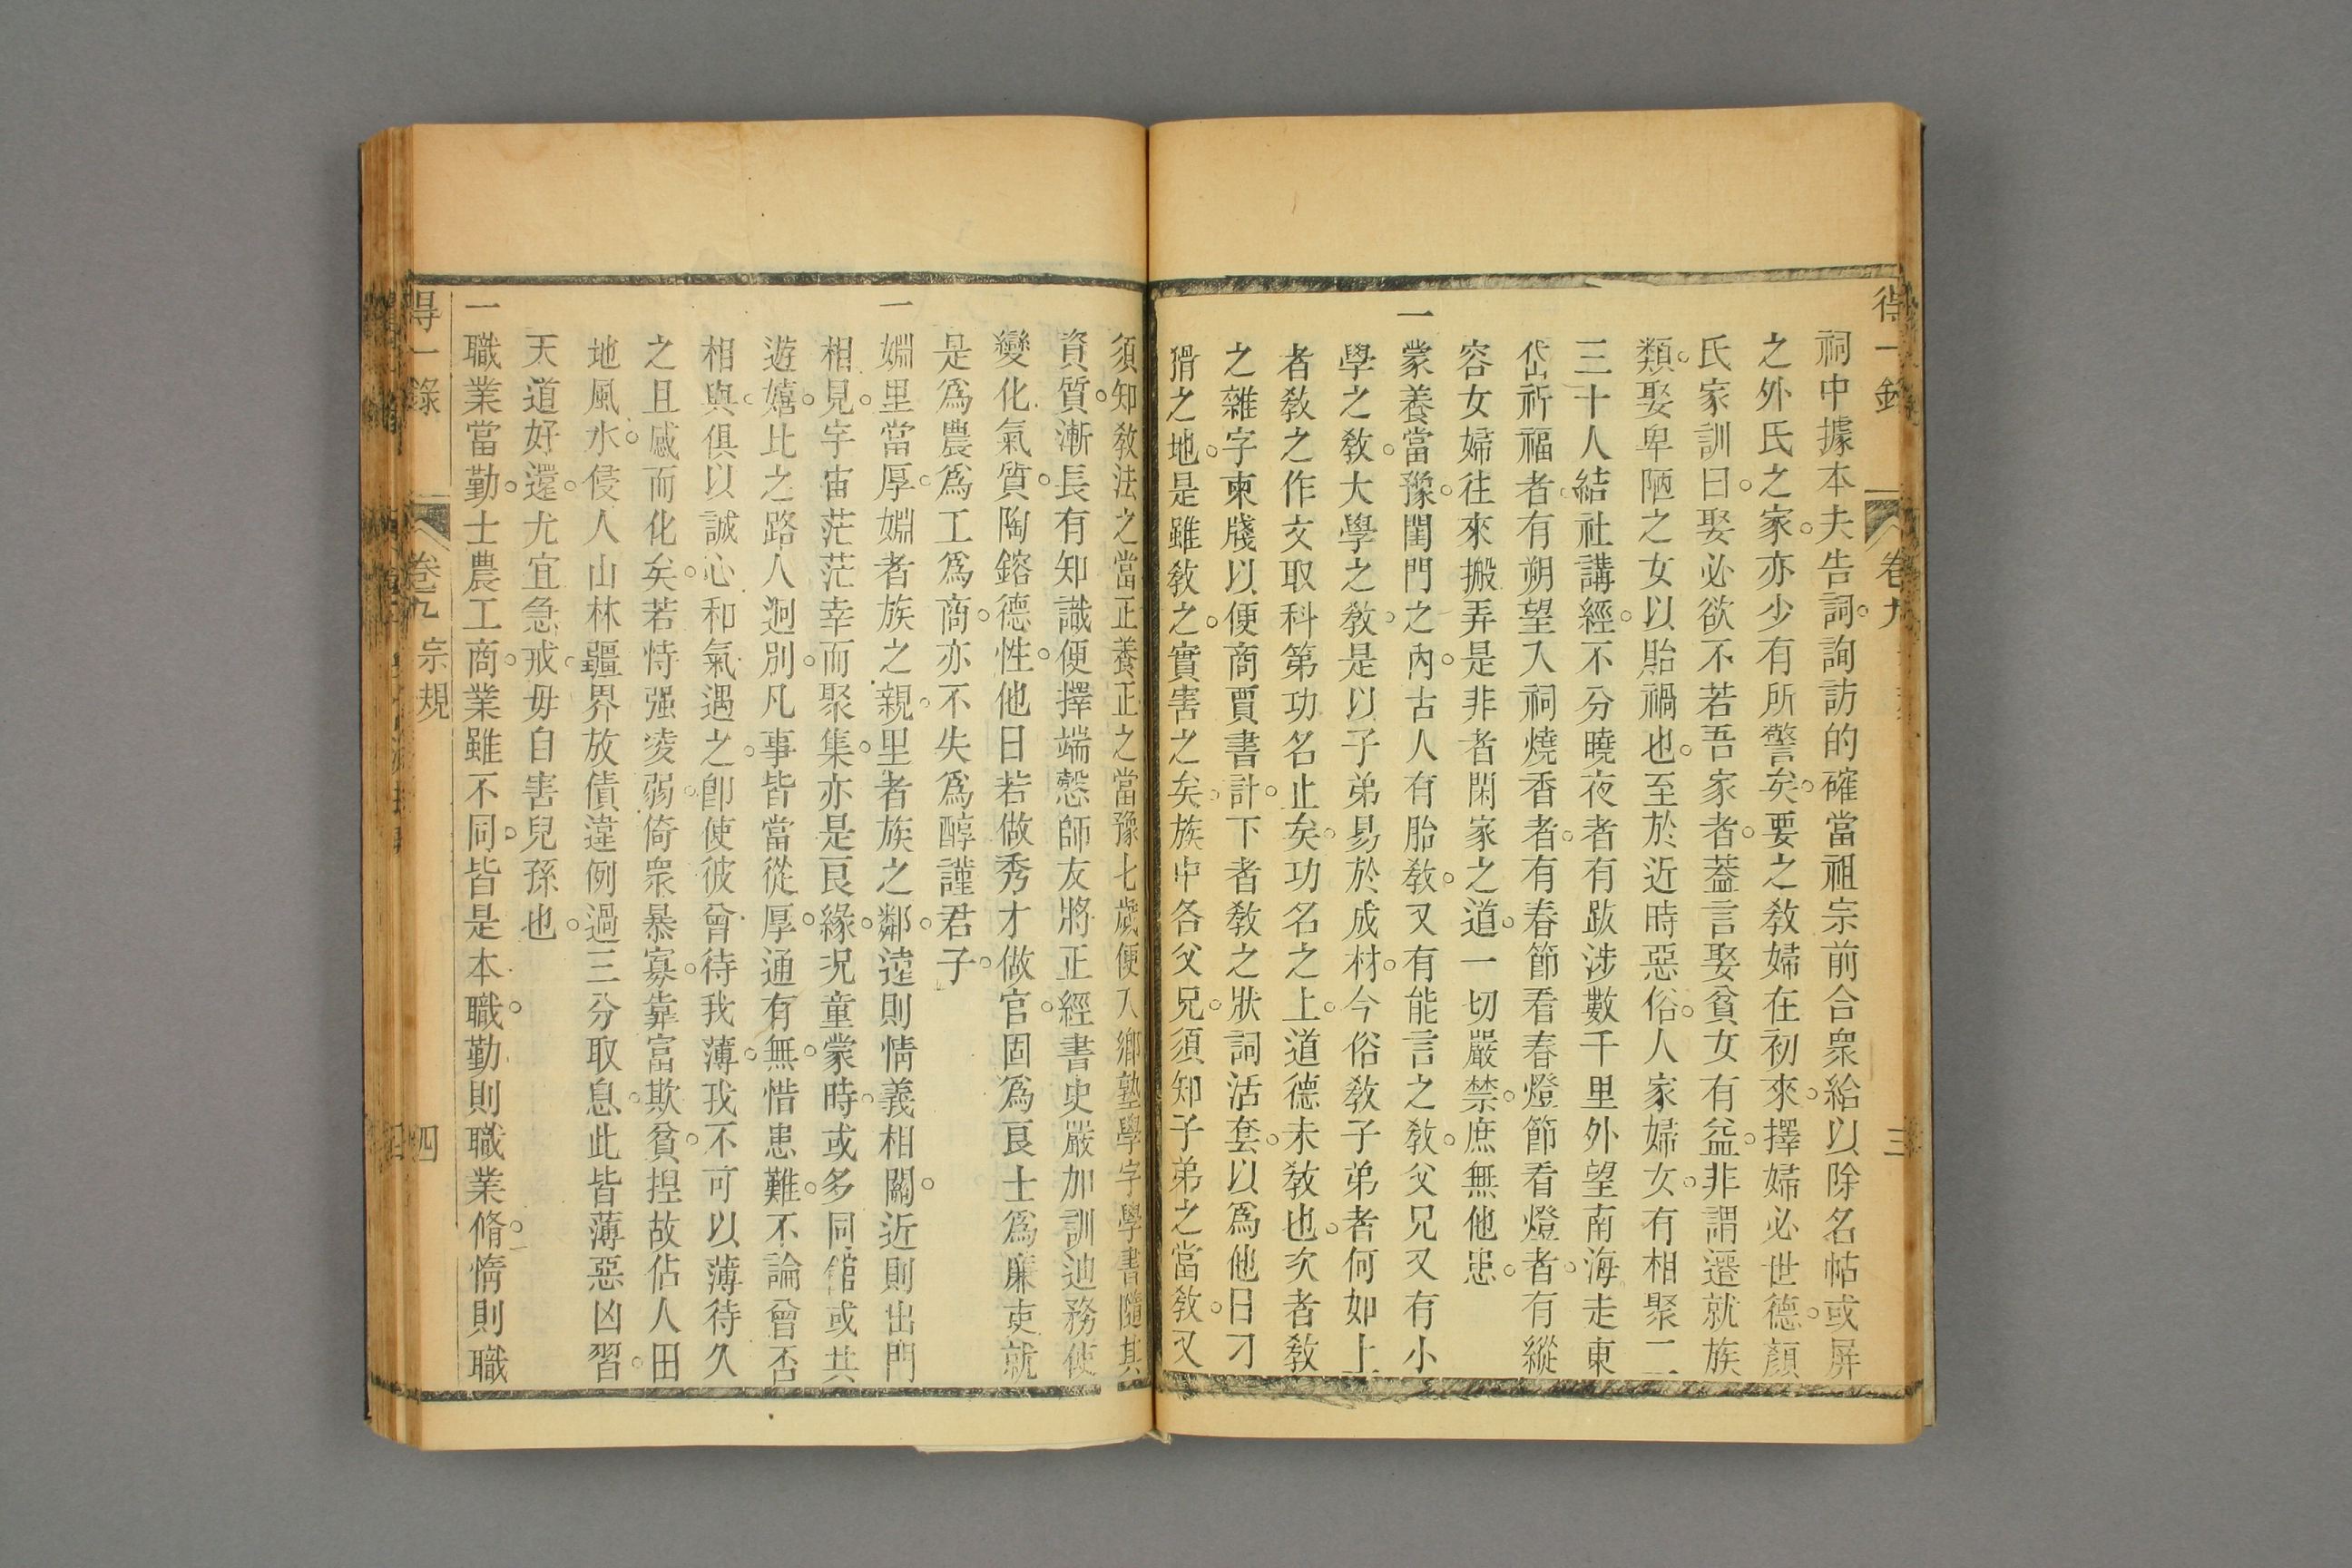 得一錄 卷九 三
祠中據本夫告詞。詢訪的確當祖宗前合衆給以除名帖或屏
之外氏之家。亦少有所警矣。要之教婦在初來。擇婦必世德。顏
氏家訓曰。娶必欲不若吾家者。蓋言娶貧女有益。非謂遷就族
類。娶卑陋之女以貽禍也。至於近時惡俗。人家婦女。有相聚二
三十人結社講經。不分曉夜者有跋涉數千里外望南海。走東
岱祈福者。有朔望入祠燒香者。有春節看春燈節看燈者。有縱
容女婦往來搬弄是非者閑家之道。一切嚴禁。庶無他患。
一蒙養當豫。閨門之內。古人有胎教。又有能言之教。父兄又有小
學之教。大學之教。是以子弟易於成材。今俗教子弟者何如上
者教之作文取科第功名止矣。功名之上。道德未教也。次者教
之雜字柬牋以便商賈書計。下者教之狀詞活套。以爲他日刁
猾之地。是雖教之。實害之矣。族中各父兄。須知子弟之當教。又
須知教法之當正養正之當豫七歲便入鄉塾學字學書隨其
資質。漸長有知識便擇端慤師友將正經書史嚴加訓迪務使
變化氣質。陶鎔德性。他日若做秀才做官。固爲良士爲廉吏就
是爲農爲工爲商。亦不失爲醇謹君子。
一婣里當厚。婣者族之親。里者族之鄰。遠則情義相關。近則出門
相見。宇宙茫茫幸而聚集。亦是良緣。況童蒙時。或多同館或共
遊嬉。比之路人迥別。凡事皆當從厚。通有無。恤患難。不論曾否
相與。俱以誠心和氣遇之。卽使彼曾待我薄。我不可以薄待久
之且感而化矣。若恃强凌弱。倚衆暴寡。靠富欺貧。捏故佔人田
地風水。侵人山林疆界放債違例過三分取息。此皆薄惡凶習。
天道好還。尤宜急戒。毋自害兒孫也。
一職業當勤。士農工商。業雖不同。皆是本職。勤則職業脩。惰則職
得一錄 卷九 宗規 四